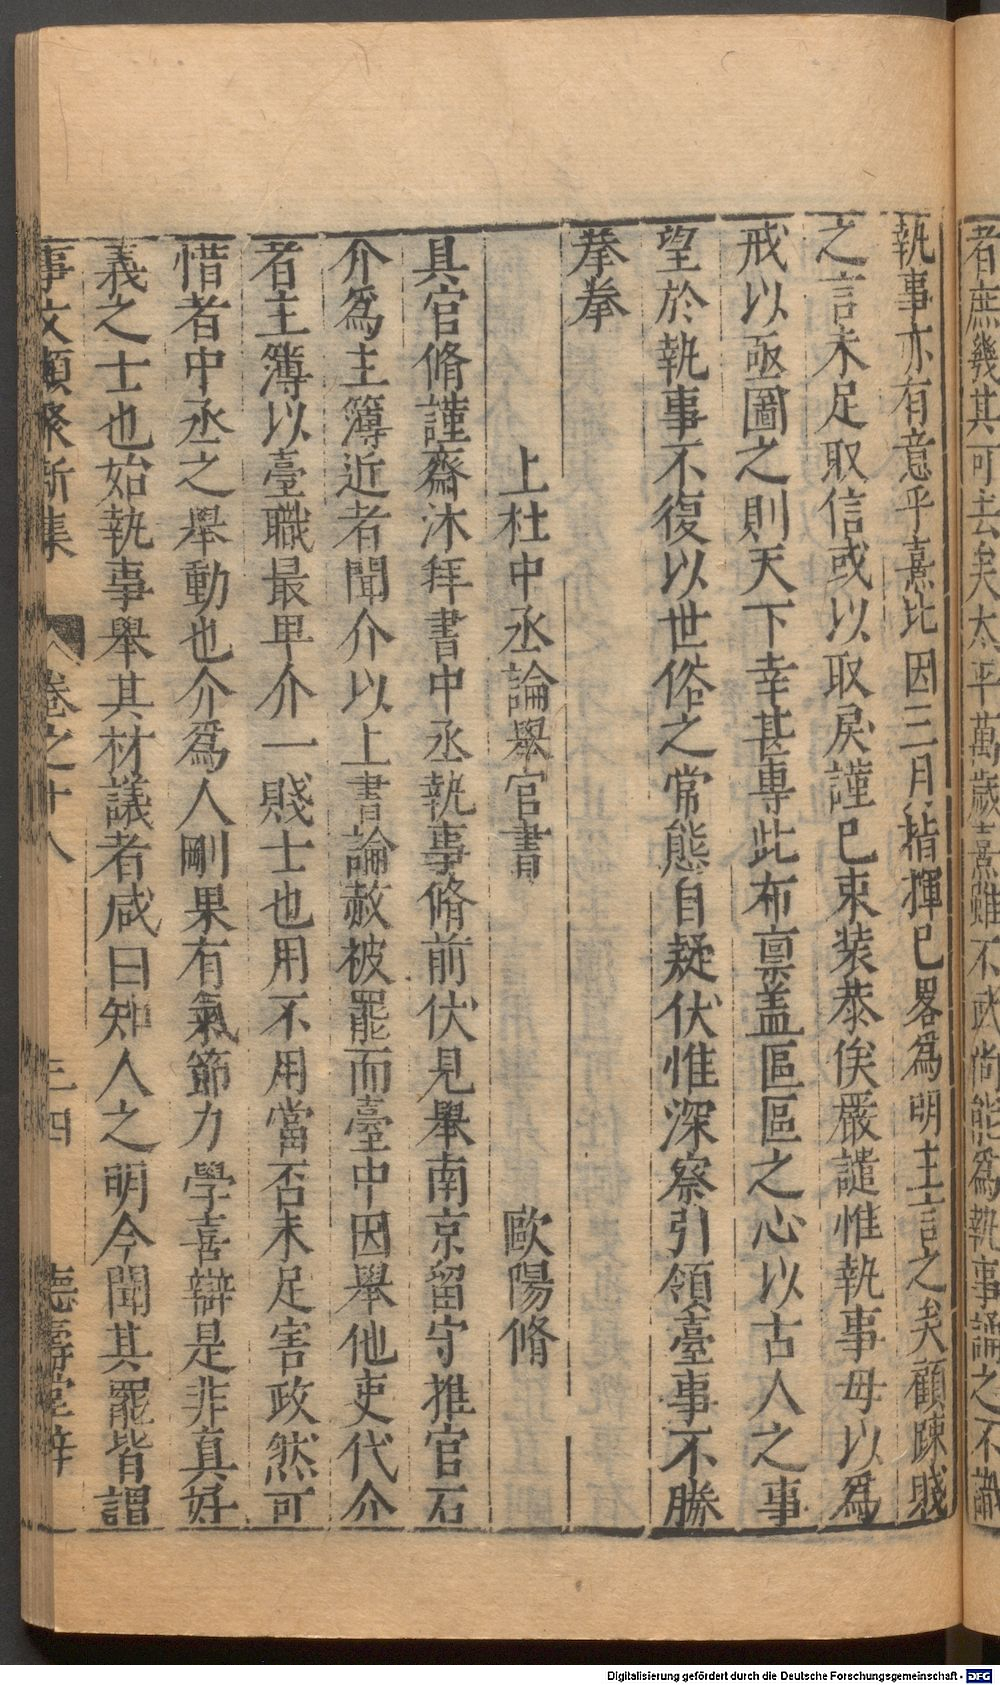 者庶幾其可去矣太平萬歲熹雖不武尚能爲執事誦之不識
執事亦有意乎熹比因三月指揮已畧爲明主言之矣顧踈賤
之言未足取信或以取戾謹已束装恭俟嚴譴惟執事毋以爲
戒以亟圖之則天下幸甚專此布禀盖區區之心以古人之事
望於執事不復以世俗之常態自疑伏惟深察引領臺事不勝
拳拳
上杜中丞論舉官書 歐陽脩
具官脩謹齋沐拜書中丞執事脩前伏見舉南京留守推官石
介爲主簿近者聞介以上書論赦被罷而臺中因舉他吏代介
者主簿以臺職最卑介一賤士也用不用當否未足害政然可
惜者中丞之舉動也介爲人剛果有氣節力學喜辯是非真好
義之士也始執事舉其材議者咸曰知人之明今聞其罷皆謂
事文類聚新集 卷之十八 三四 德壽堂梓
Digitalisierung gefördert durch die Deutsche Forschungsgemeinschaft - DFG